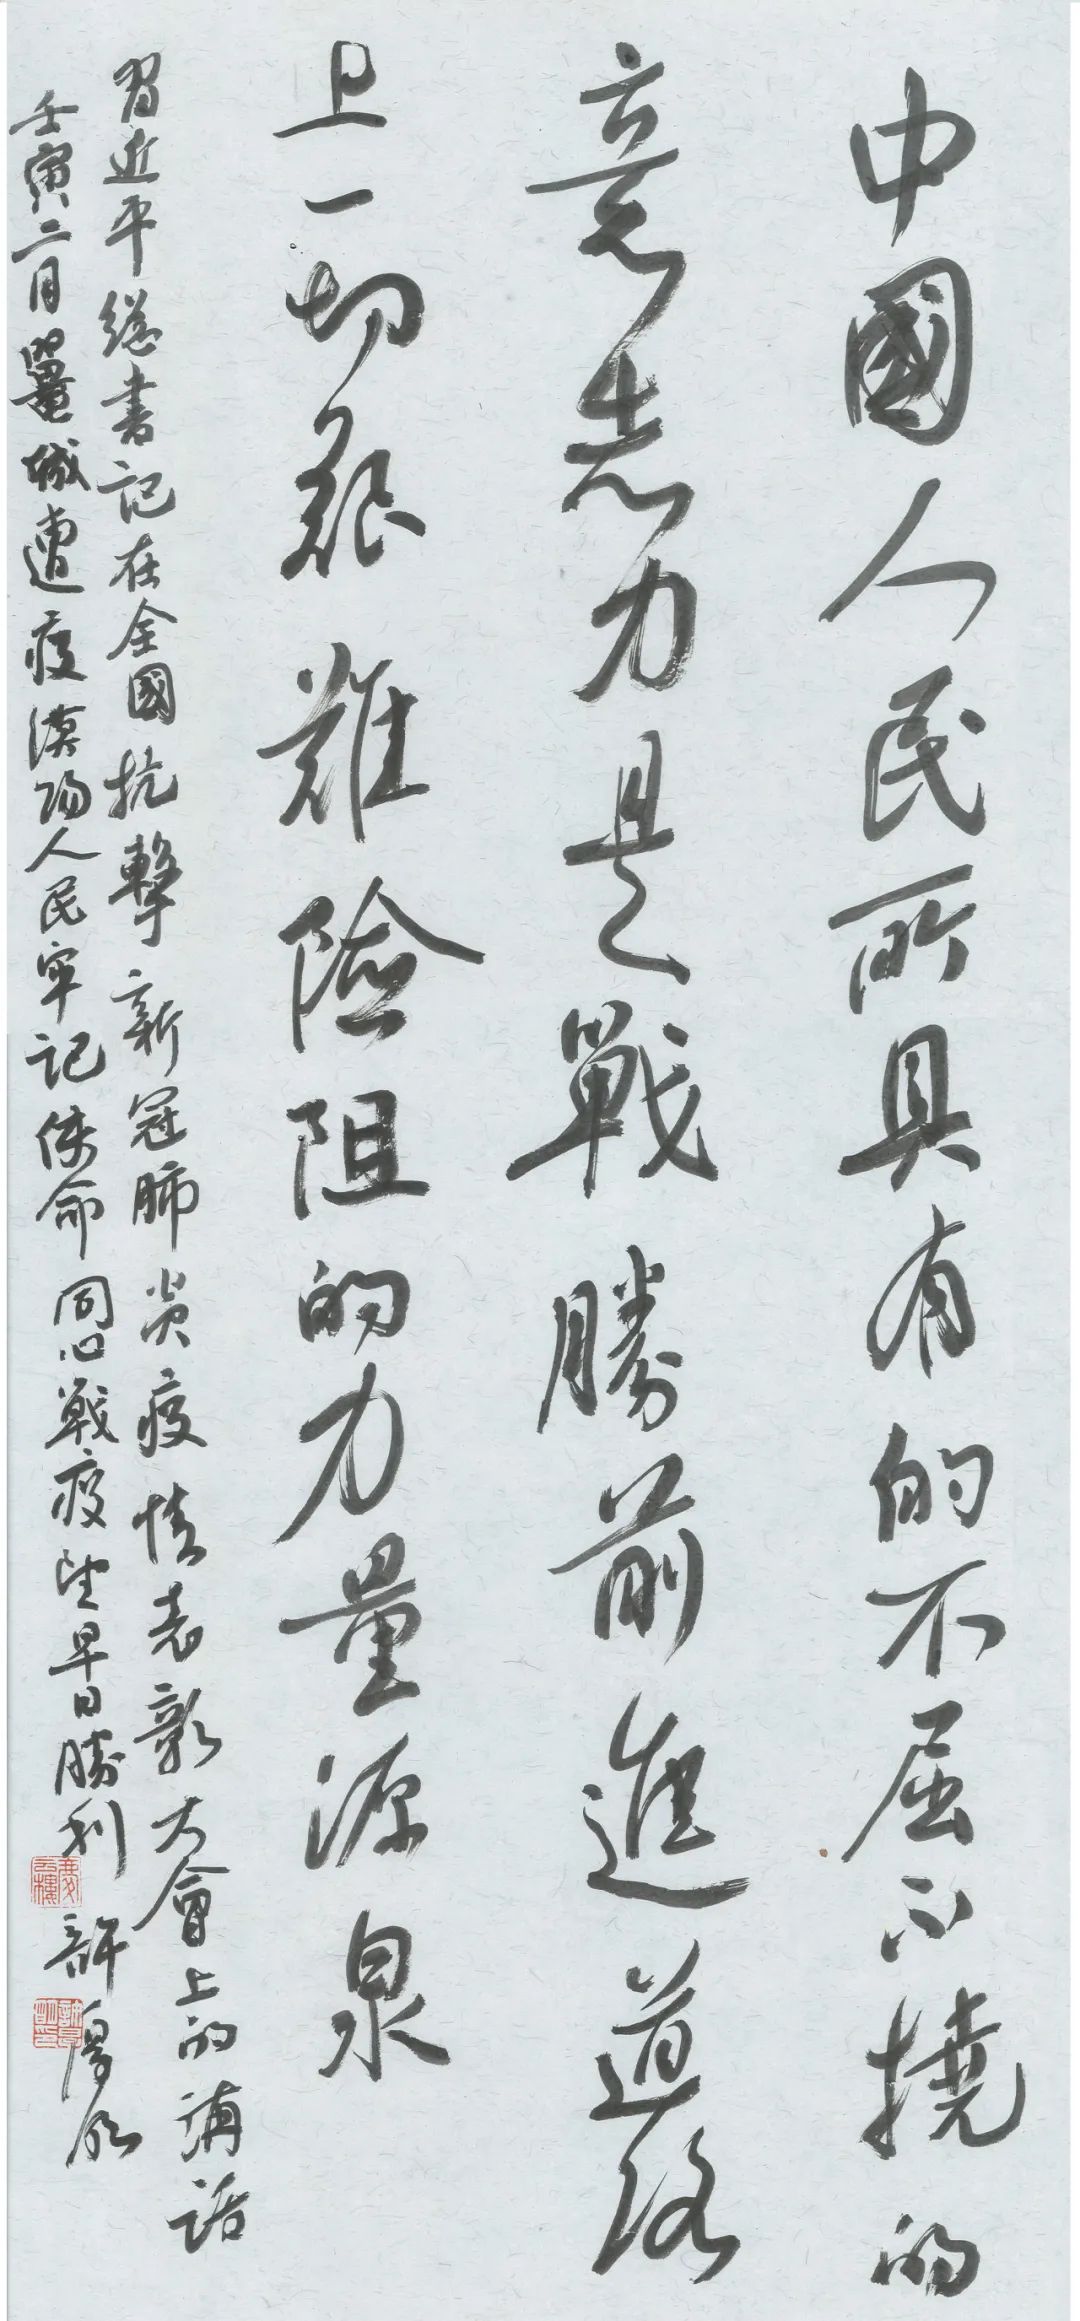 中國人民所具有的不屈不撓的
意志力是戰勝前進道路
上一切艱難險阻的力量源泉
習近平總書記在全國抗擊新冠肺炎疫情表彰大會上的講話
壬寅二月鼉城遭疫漠陽人民牢記使命同心戰疫望早日勝利 許